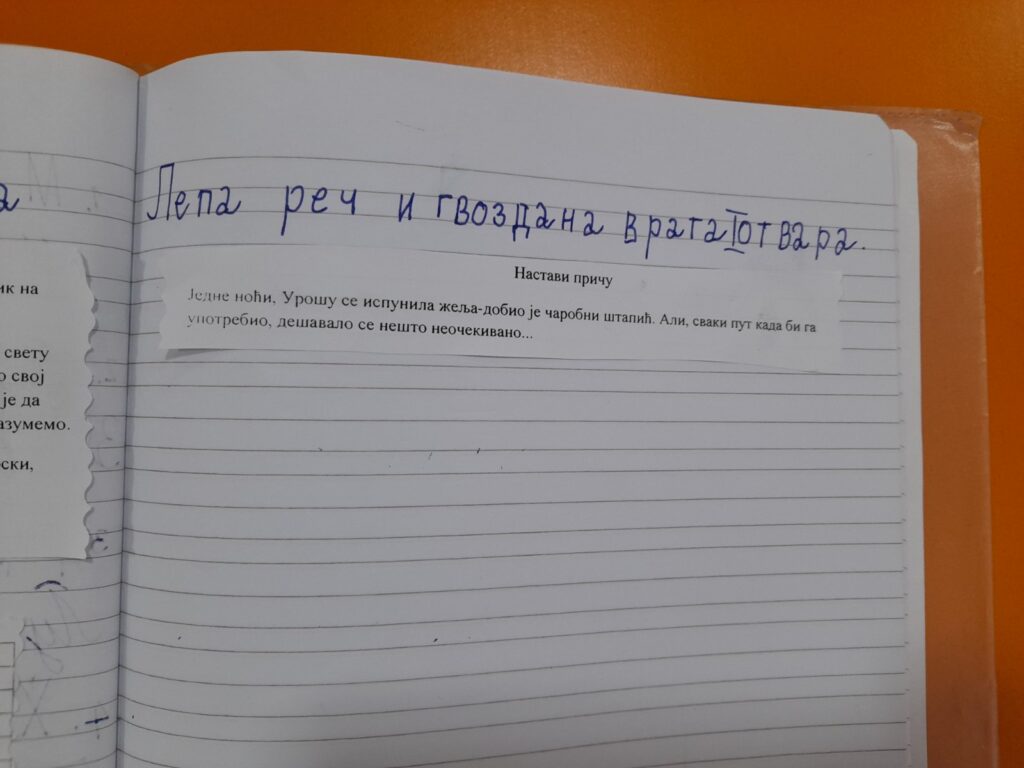 а
Лепа реч и гвоздана врата отвара.
ик на
свету
о свој
је да
азумемо.
ски,
Настави причу
Једне ноћи, Урошу се испунила жеља-добио је чаробни штапић. Али, сваки пут када би га
употребио, дешавало се нешто неочекивано...